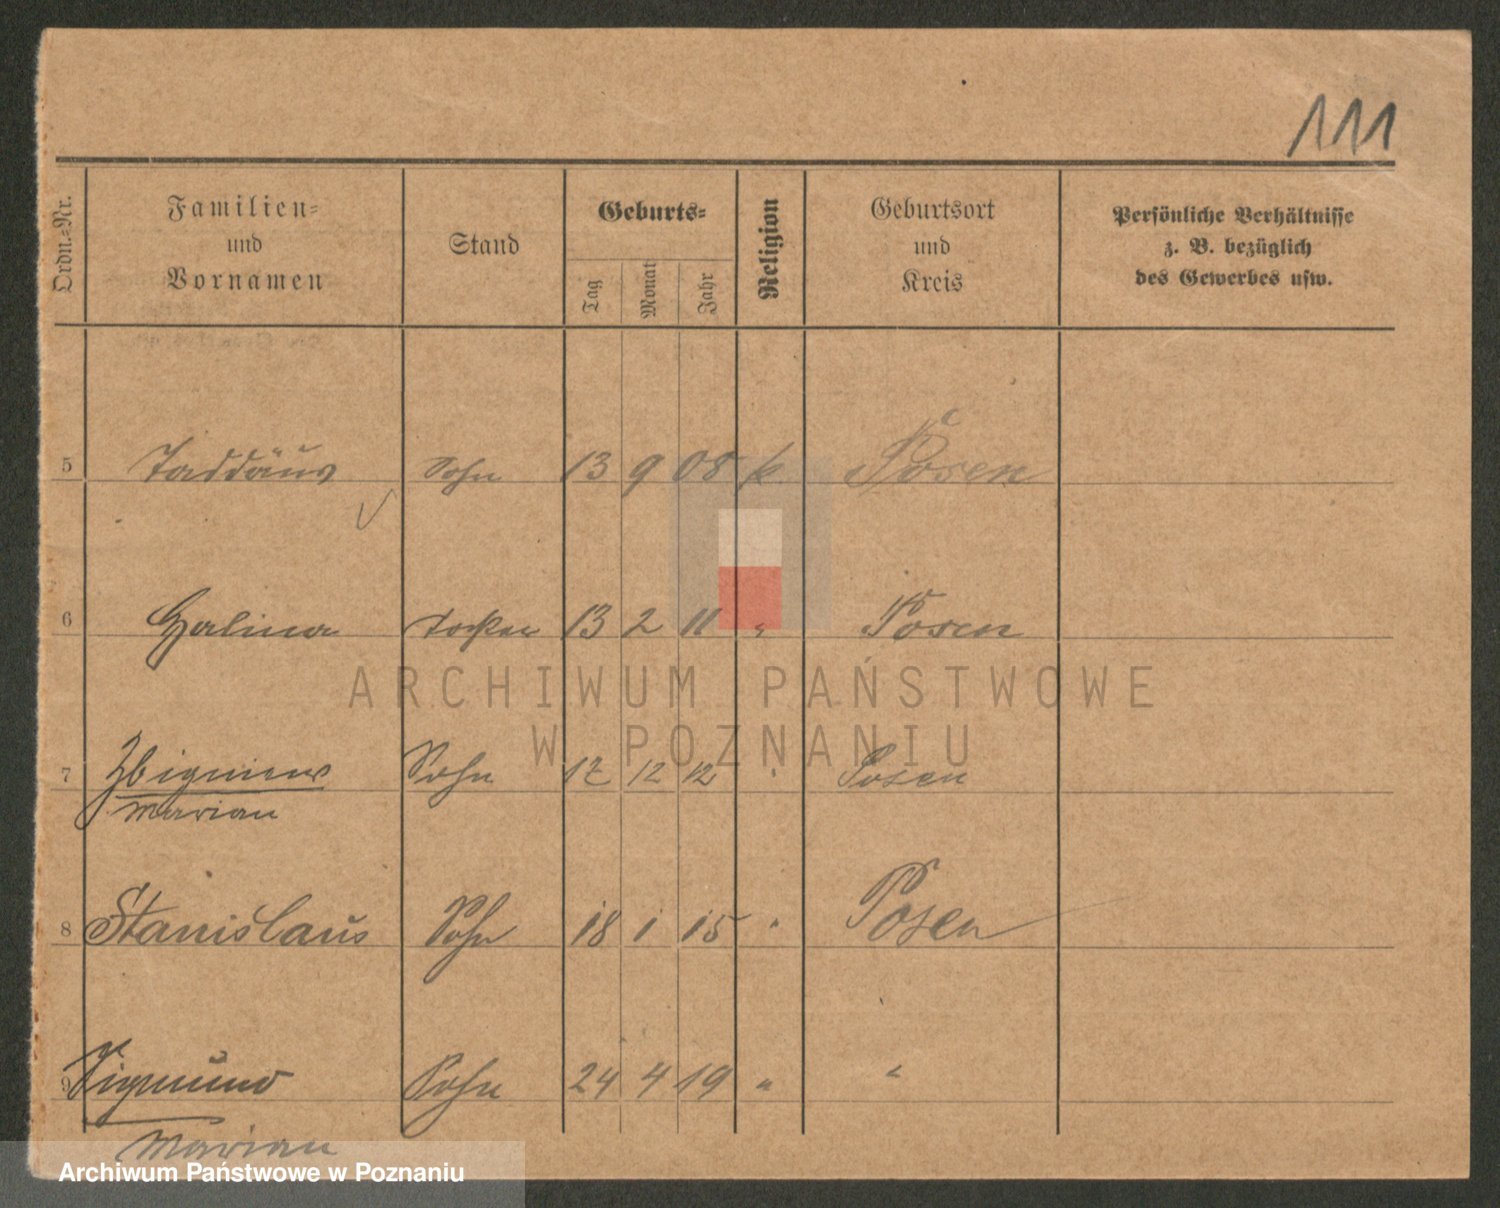 111
Ordn.-Nr.
Familien-
und
Vornamen
Stand
Geburts-
Tag
Monat
Jahr
Religion
Geburtsort
und
Kreis
Persönliche Verhältnisse
z. B. bezüglich
des Gewerbes usw.
5 Taddäus Sohn 13 9 08 k Posen
6 Halina 13 2 11 " Posen
7 Zbigniew Sohn 12 12 " Posen
Marian
8 Stanislaus Sohn 18 1 15 " Posen
9 Sigmund Sohn 24 4 19 " "
Marian
ARCHIWUM PAŃSTWOWE
W POZNANIU
Archiwum Państwowe w Poznaniu